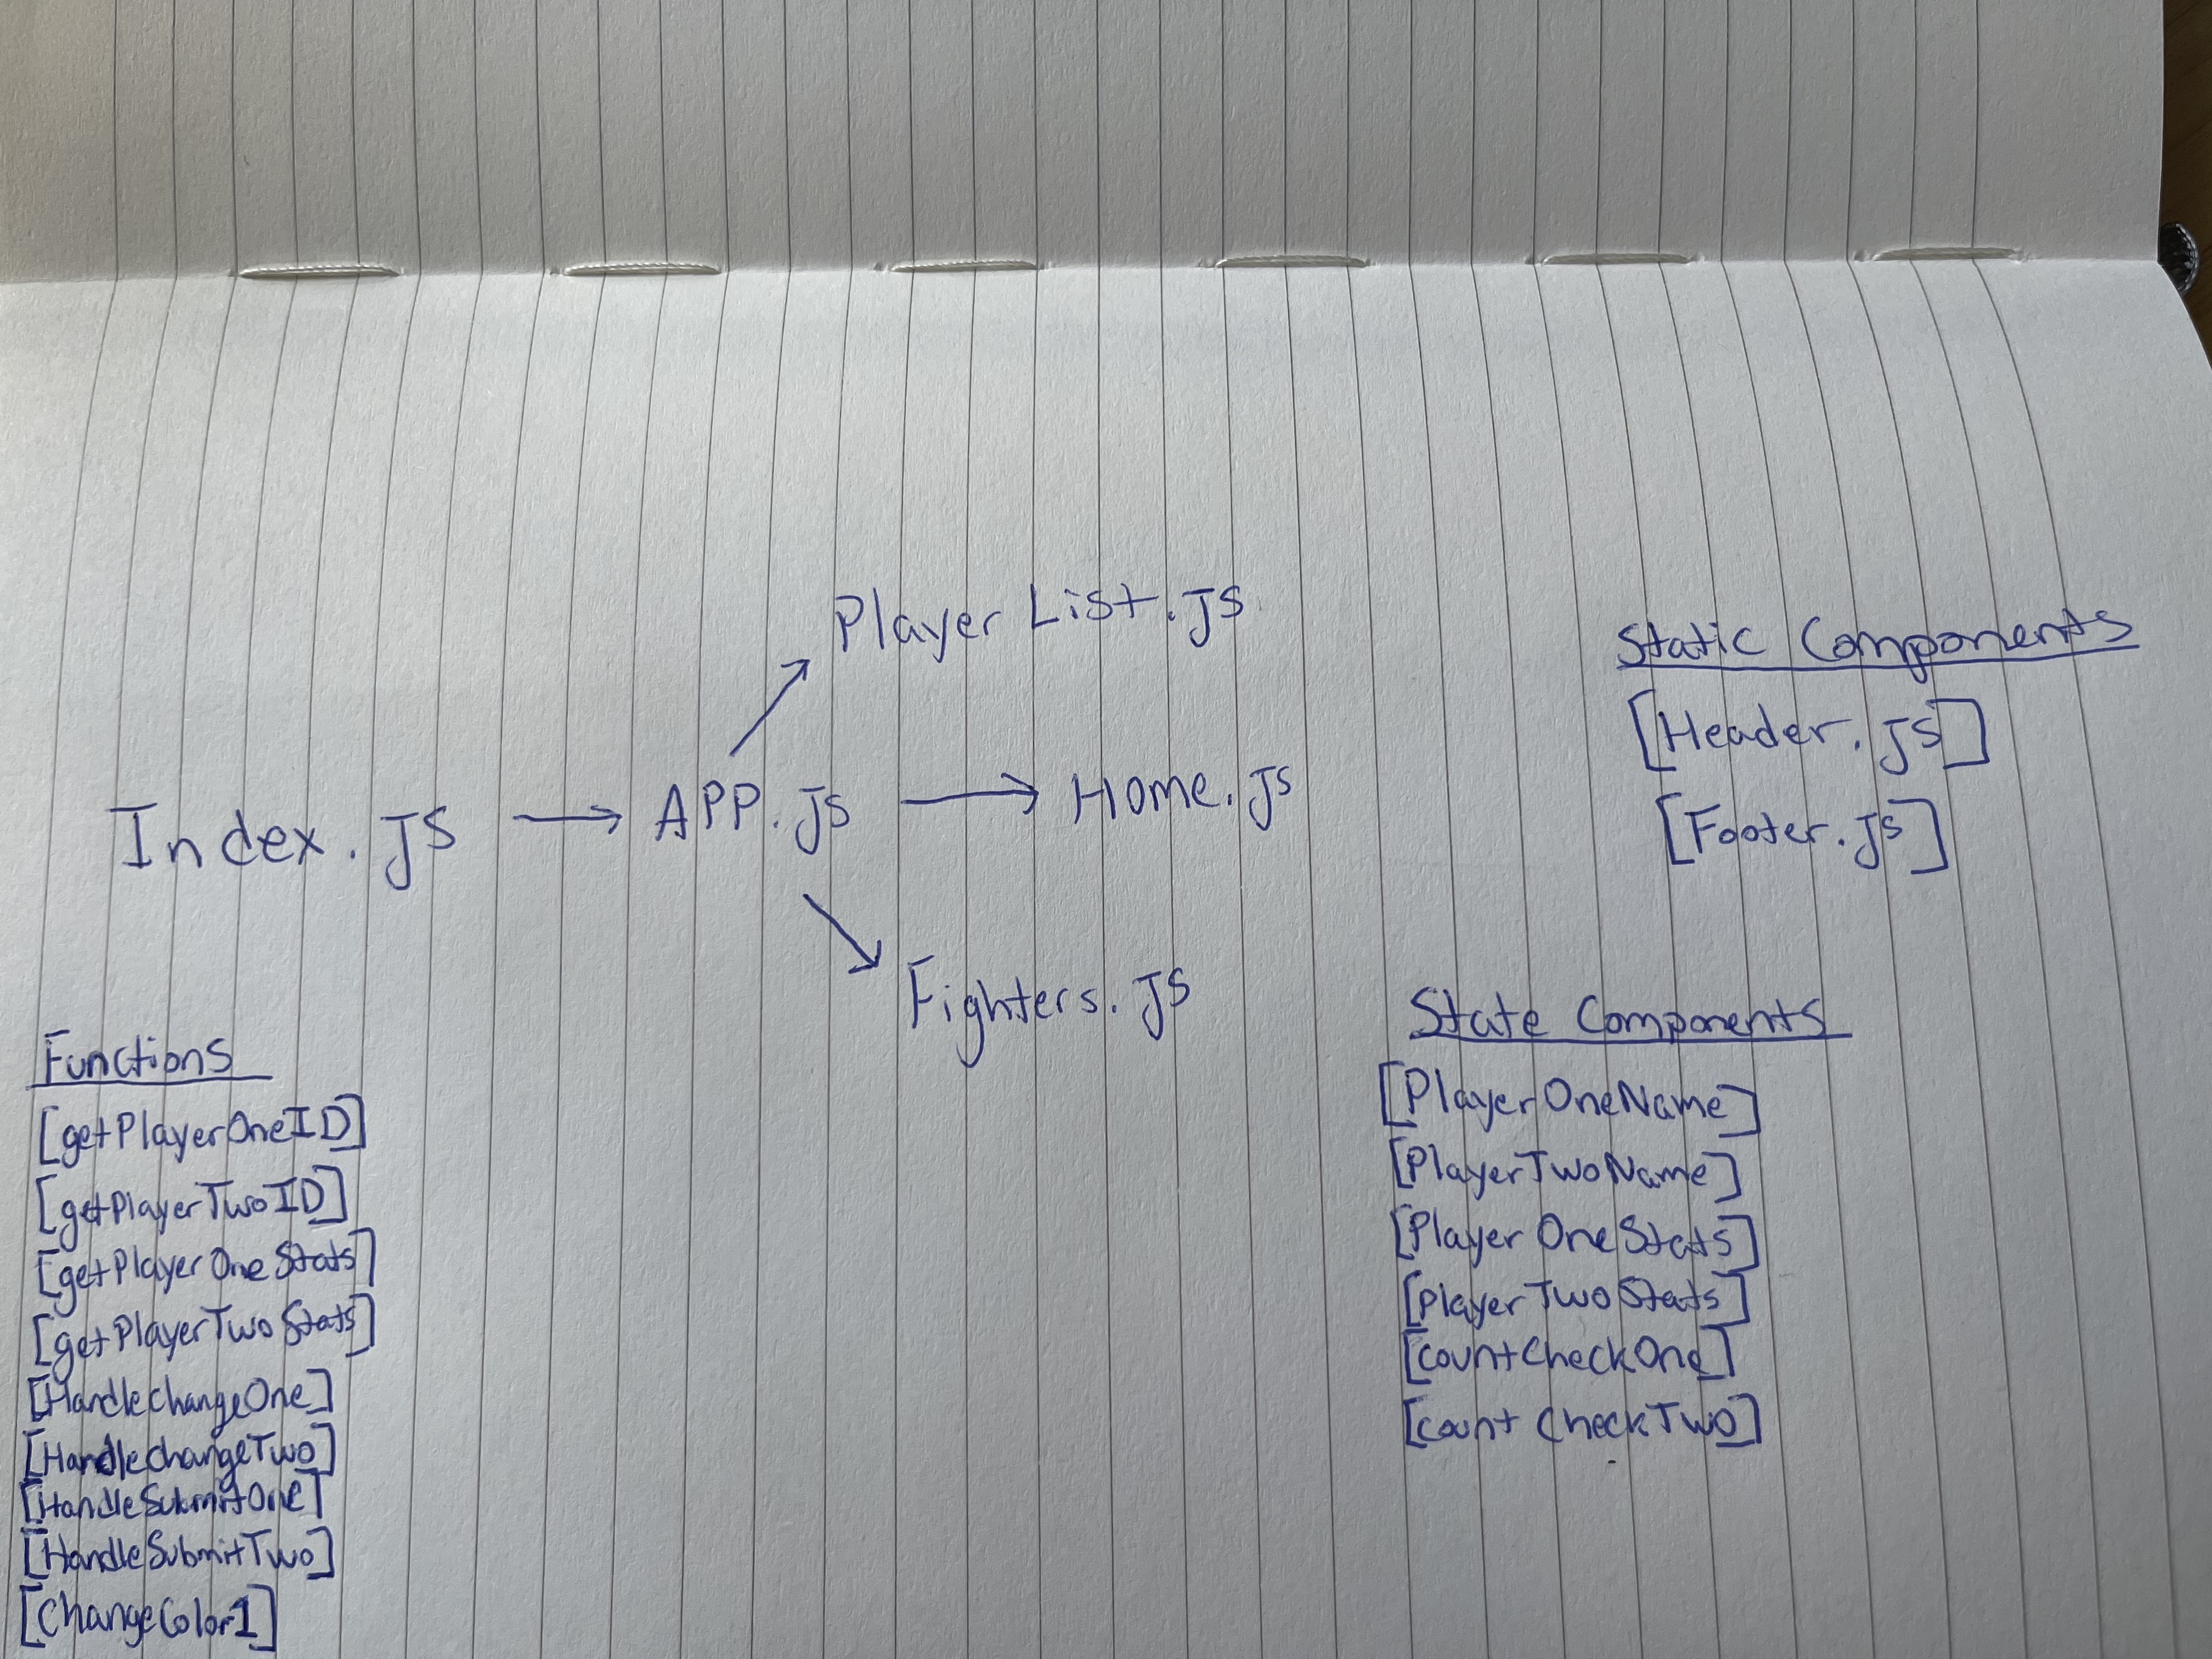 Player List.js
Index.js → App.js → Home.js
Fighters.js
Static Components
[Header.js]
[Footer.js]
Functions
[getPlayerOneID]
[getPlayerTwoID]
[getPlayerOneStats]
[getPlayerTwoStats]
[HandleChangeOne]
[HandleChangeTwo]
[HandleSubmitOne]
[HandleSubmitTwo]
[ChangeColor1]
State Components
[PlayerOneName]
[PlayerTwoName]
[PlayerOneStats]
[PlayerTwoStats]
[countCheckOne]
[countCheckTwo]